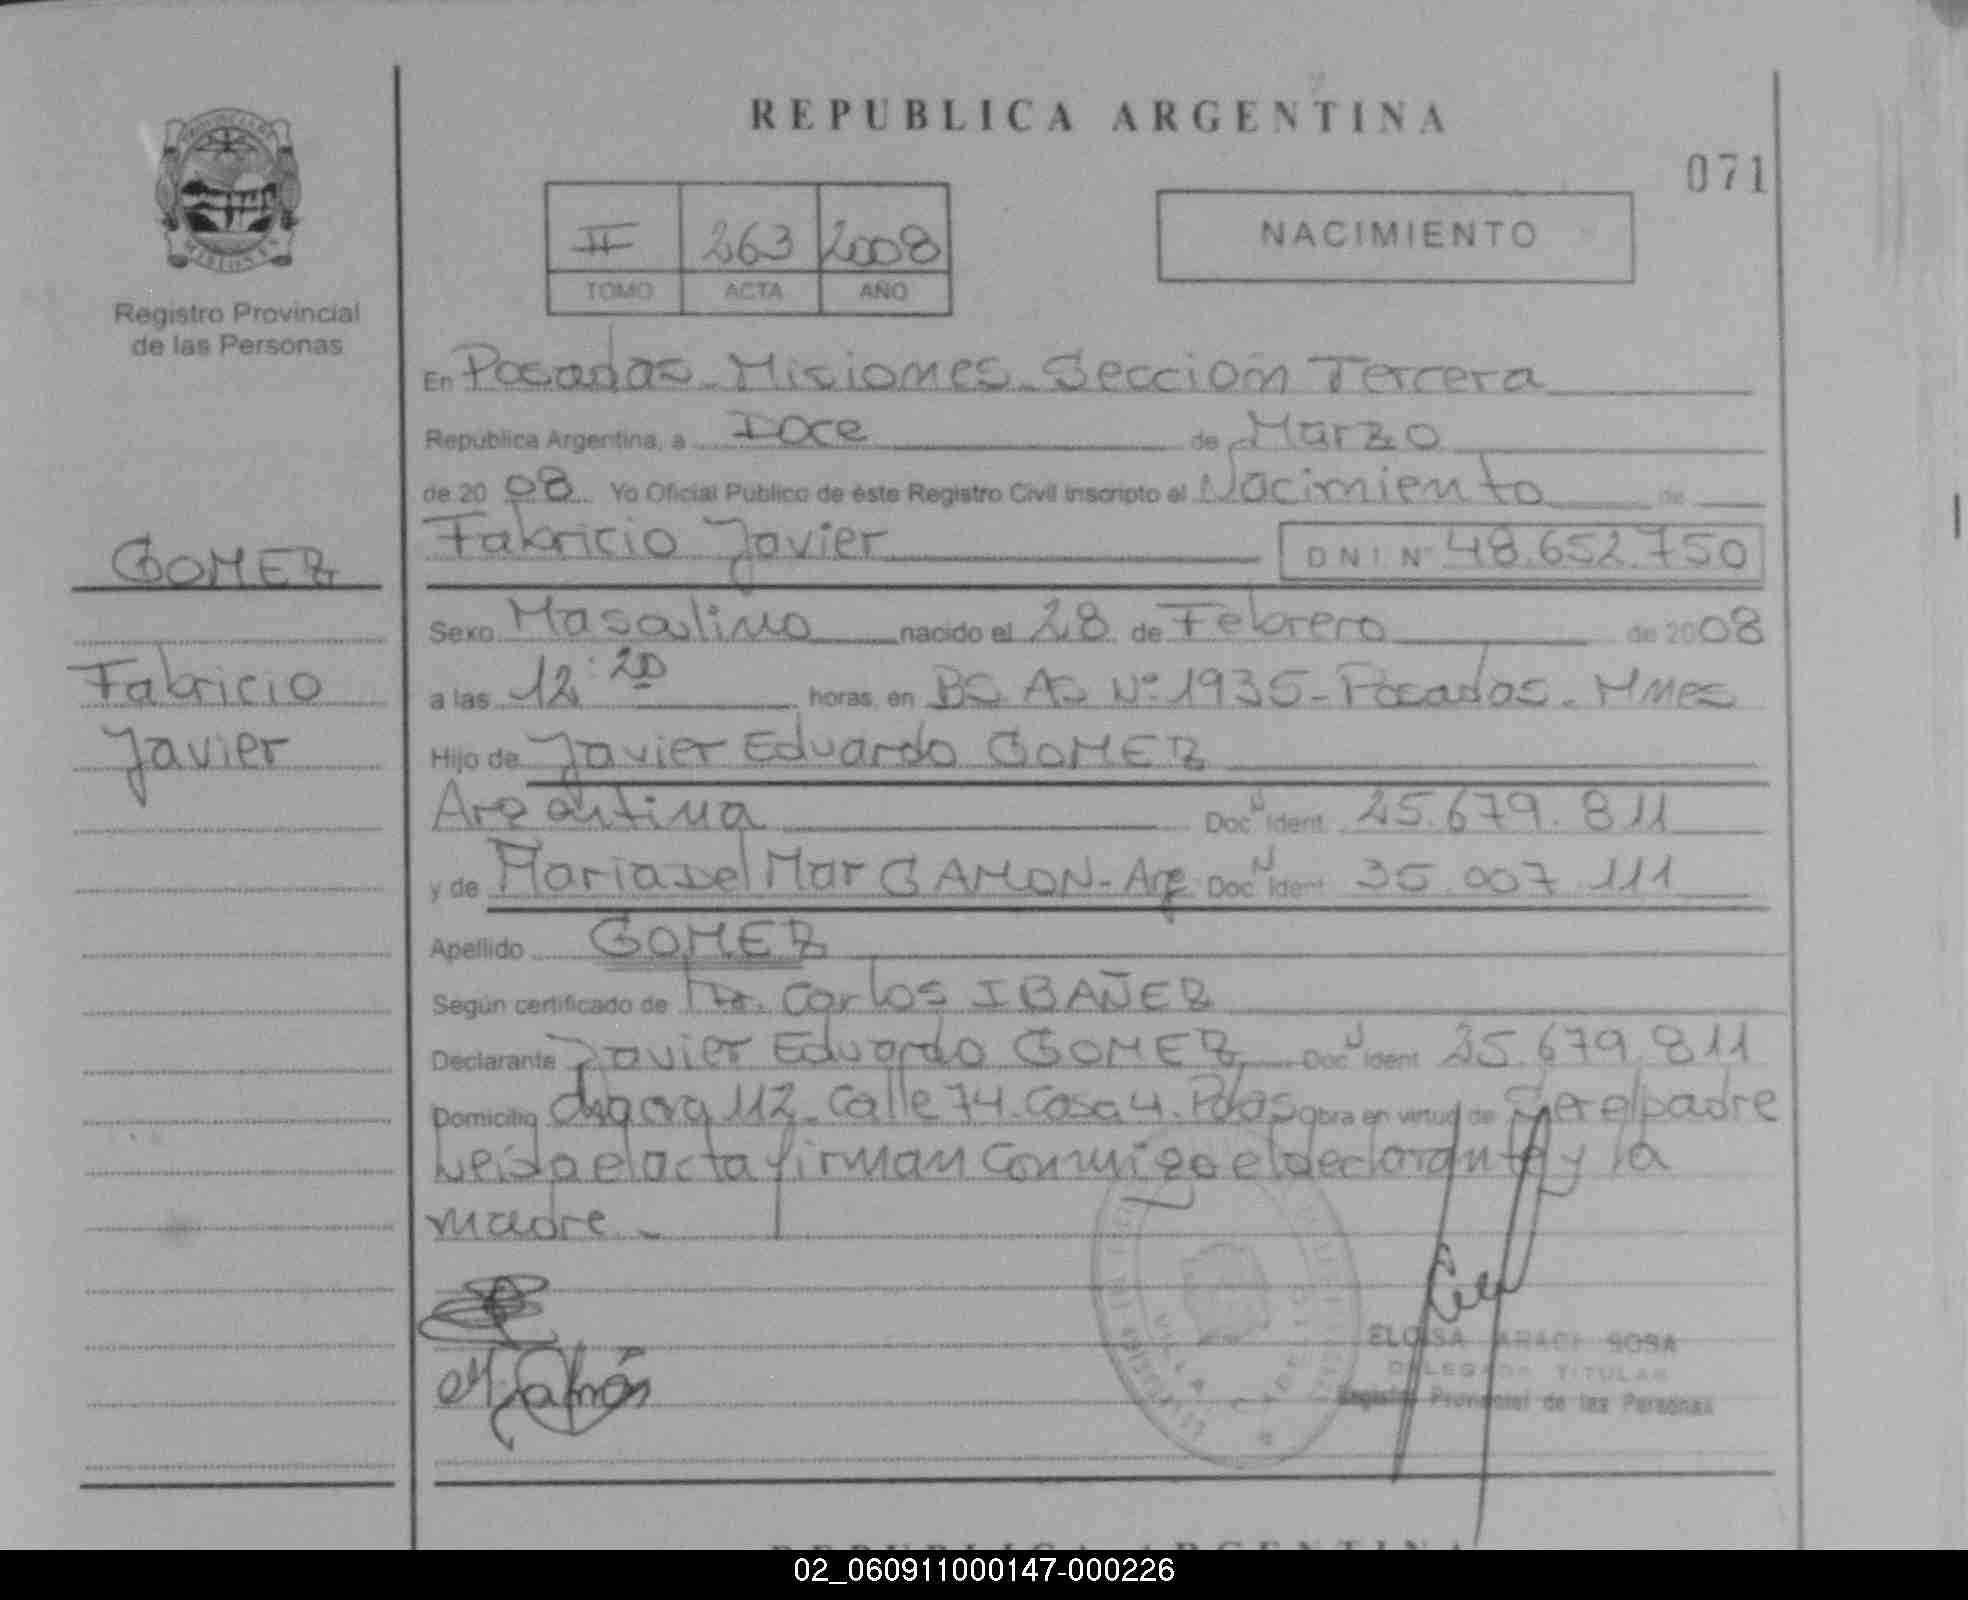 REPUBLICA ARGENTINA
071
II 263 2008
TOMO ACTA AÑO
NACIMIENTO
PROVINCIA DE
MISIONES
Registro Provincial
de las Personas
GOMEZ
Fabricio
Javier
En Posadas - Misiones - Sección Tercera
República Argentina, a Doce de Marzo
de 20 08 Yo Oficial Público de éste Registro Civil inscripto el Nacimiento de
Fabricio Javier D N I Nº 48.652.750
Sexo Masculino nacido el 28 de Febrero de 2008
a las 12:20 horas, en BS AS Nº 1935 - Posadas - Mnes
Hijo de Javier Eduardo GOMEZ
Argentina Doc N Ident 25.679.811
y de Maria Del Mar GAMON - Arg Doc N Ident 35.007.111
Apellido GOMEZ
Según certificado de Dr. Carlos IBAÑEZ
Declarante Javier Eduardo GOMEZ Doc N Ident 25.679.811
Domicilio chacra 112 - Calle 74 - Casa 4 - Pdas obra en virtud de Ser el padre
Leida el acta firman Conmigo el declarante y la
madre -
ELOISA ARACI SOSA
DELEGADA TITULAR
Registro Provincial de las Personas
REPUBLICA ARGENTINA
02_060911000147-000226